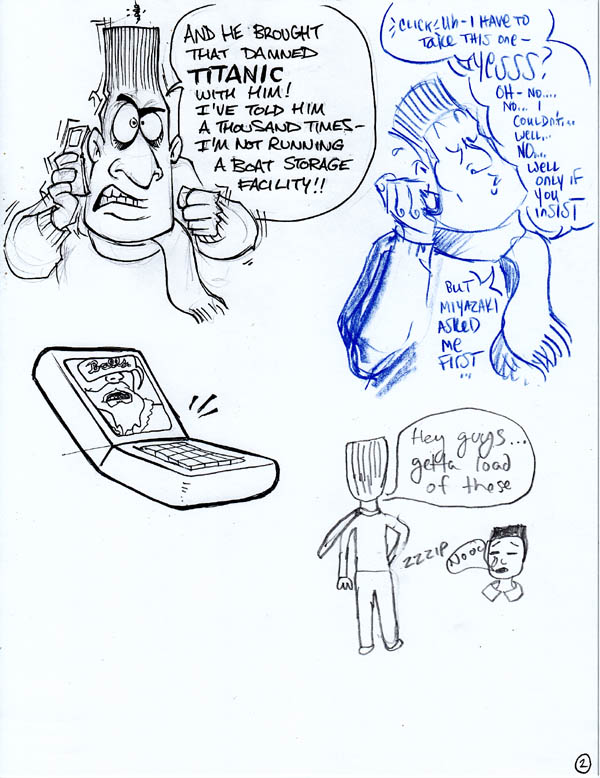 AND HE BROUGHT
THAT DAMNED
TITANIC
WITH HIM!
I'VE TOLD HIM
A THOUSAND TIMES-
I'M NOT RUNNING
A BOAT STORAGE
FACILITY!!
CLICK Uh- I HAVE TO
TAKE THIS ONE-
YESSS?
OH-NO....
NO... I
COULDN'T...
WELL...
NO....
WELL
ONLY IF
YOU
INSIST
BUT
MIYAZAKI
ASKED
ME
FIRST
...
Hey guys...
getta load
of these
ZZZIP
NOOO
2